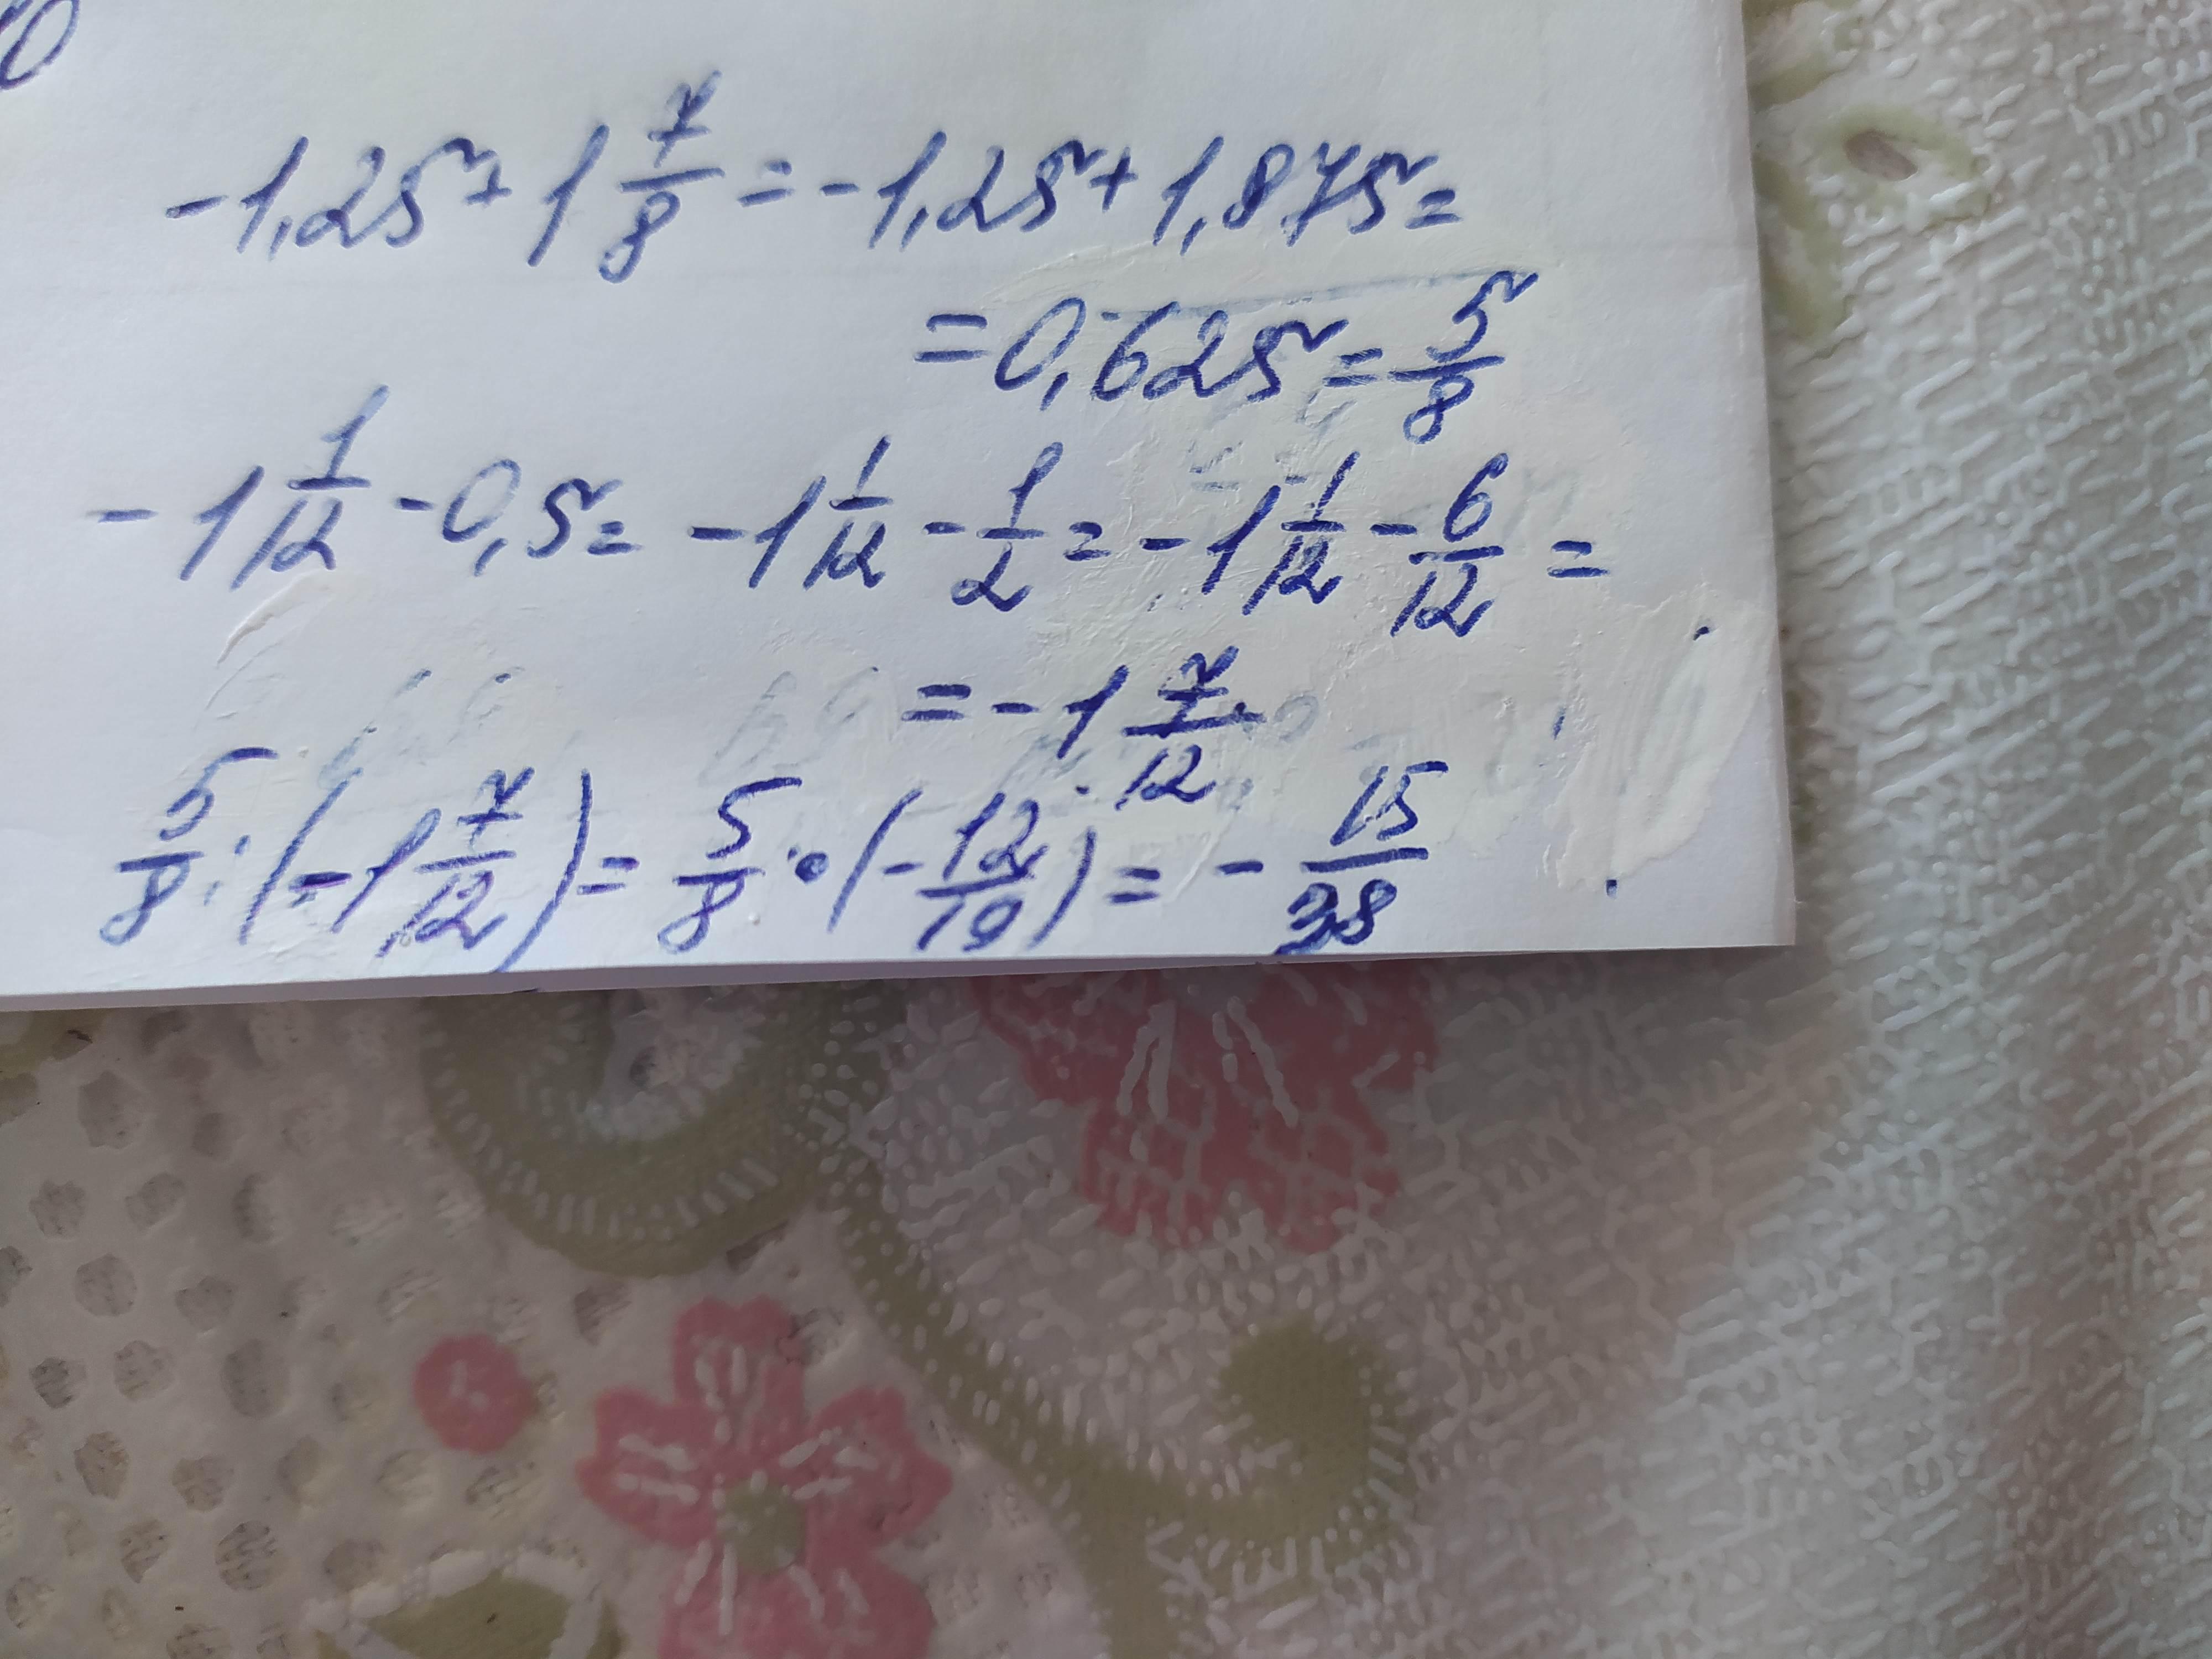 -1,25+1 7/8=-1,25+1,875=
=0,625=5/8
-1 1/12-0,5=-1 1/12-1/2=-1 1/12-6/12=
=-1 7/12
5/8:(-1 7/12)=5/8·(-12/19)=-15/38